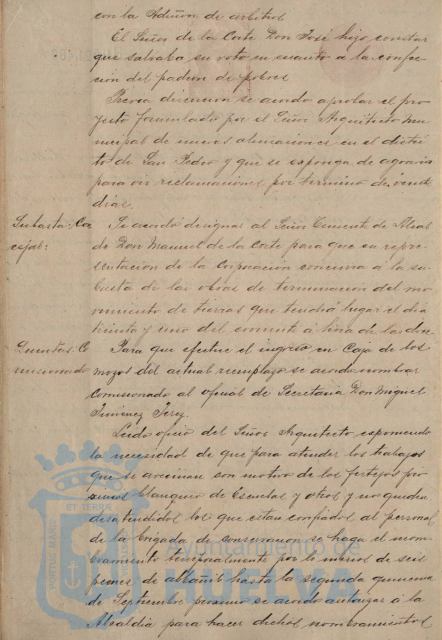 con la Admon de arbitrios
El Señor de la Corte Don José hizo constar
que salvaba su voto en cuanto a la confec-
cion del padron de pobres
Previa discusion se acordo aprobar el pro-
yecto formulado por el Señor Arquitecto mu-
nicipal de nuevas alineaciones en el distri-
to de San Pedro y que se exponga de agravio
para oir reclamaciones por termino de veinte
dias.
Subasta: Con
cejal:
Se acordo designar al Señor Teniente de Alcal
de Don Manuel de la Corte para que en repre-
sentacion de la Corporacion concurra a la su-
basta de las obras de terminacion del mo-
vimiento de tierras que tendrá lugar el dia
treinta y uno del corriente a hora de las doce
Quintas. Co
misionado
Para que efectue el ingreso en Caja de los
mozos del actual reemplazo se acordo nombrar
Comisionado al oficial de Secretaria Don Miguel
Jimenez
Leido oficio del Señor Arquitecto exponiendo
la necesidad de que para atender los trabajos
que se avecinan con motivo de los festejos pró
ximos blanqueo de Escuelas y otros y no queden
desatendidos los que estan confiados al personal
de la brigada de conservacion se haga el nom-
bramiento temporalmente por lo menos de seis
peones de albañil hasta la segunda quincena
de Septiembre proximo se acordo autorizar á la
Alcaldia para hacer dichos nombramientos
PORTUS MARIS
ET TERRAE
Ayuntamiento de
HUELVA